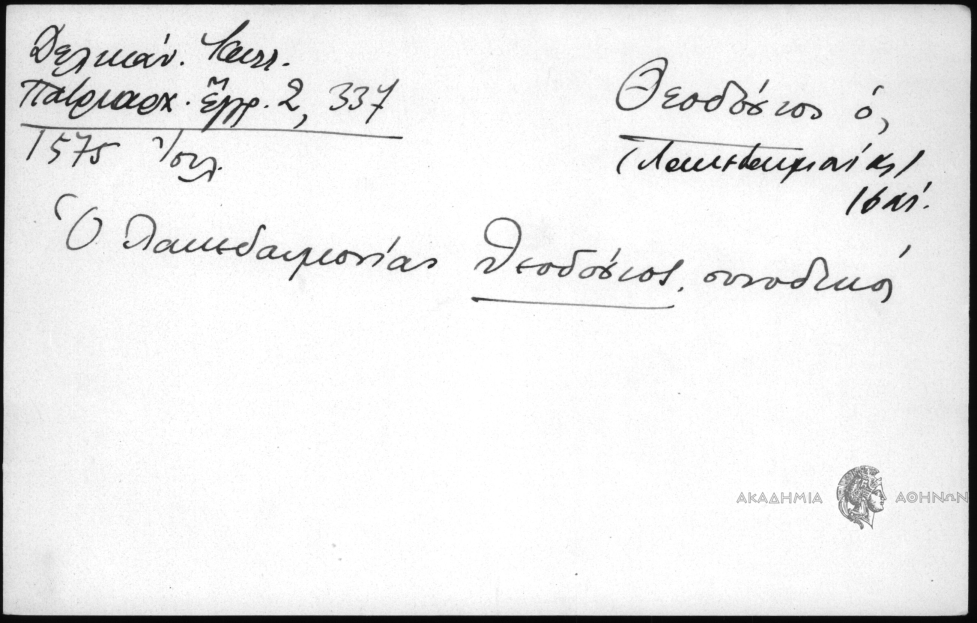 Δελικάν. Καλλ.
Πατριαρχ. Ἔγγρ. 2, 337
1575 Ἰουλ.
Θεοδόσιος ὁ,
(Λακεδαιμονίας)
16 αἰ.
Ὁ Λακεδαιμονίας Θεοδόσιος, συνοδικός
ΑΚΑΔΗΜΙΑ ΑΘΗΝΩΝ